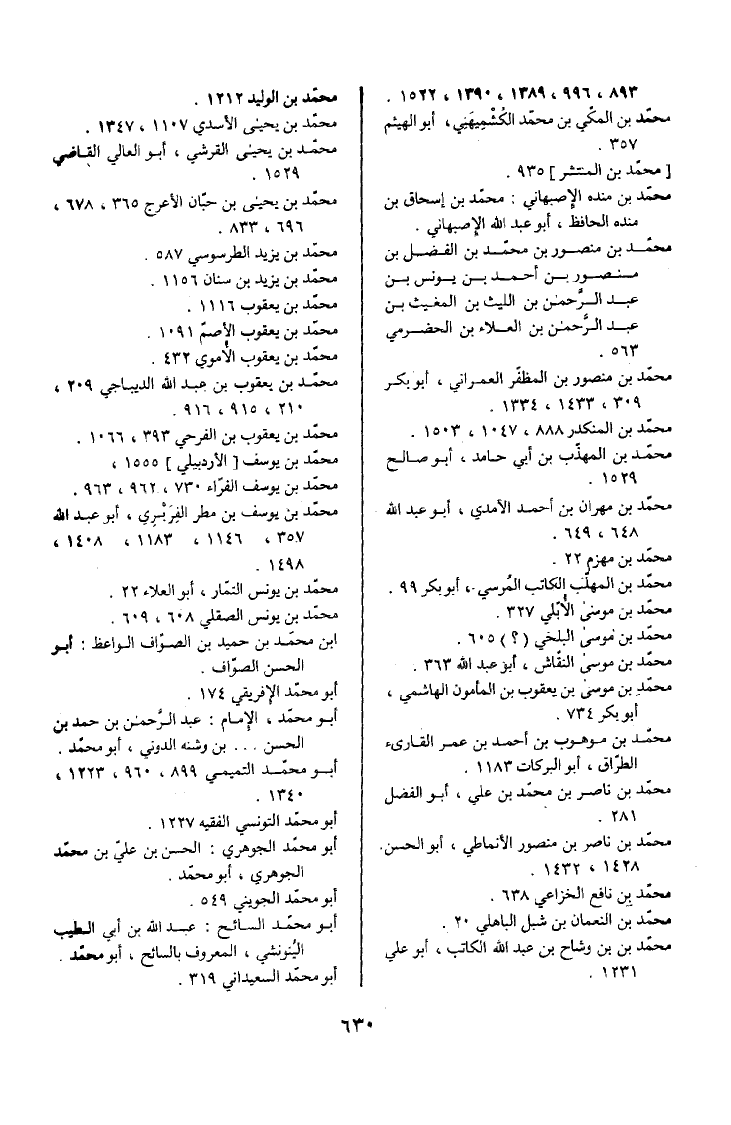 ٨٩٣ ، ٩٩٦ ، ١٣٨٩ ، ١٣٩٠ ، ١٥٢٢ .
محمّد بن المكّي بن محمّد الكُشْمِيهَني، أبو الهيثم
٣٥٧ .
[ محمّد بن المنتشر ] ٩٣٥ .
محمّد بن منده الإصبهاني : محمّد بن إسحاق بن
منده الحافظ ، أبو عبد الله الإصبهاني .
محمّد بن منصور بن محمّد بن الفضل بن
منصور بن أحمد بن يونس بن
عبد الرَّحمٰن بن الليث بن المغيث بن
عبد الرَّحمٰن بن العلاء بن الحضرمي
٥٦٣ .
محمّد بن منصور بن المظفّر العمراني ، أبو بكر
٣٠٩ ، ١٤٣٣ ، ١٣٣٤ .
محمّد بن المنكدر ٨٨٨ ، ١٠٤٧ ، ١٥٠٣ .
محمّد بن المهذّب بن أبي حامد ، أبو صالح
١٥٢٩ .
محمّد بن مهران بن أحمد الآمدي ، أبو عبد الله
٦٤٨ ، ٦٤٩ .
محمّد بن مهزم ٢٢ .
محمّد بن المهلّب الكاتب المُرسي ، أبو بكر ٩٩ .
محمّد بن موسىٰ الأُبلي ٣٢٧ .
محمّد بن موسىٰ البلخي (؟) ٦٠٥ .
محمّد بن موسىٰ النقّاش ، أبو عبد الله ٣٦٣ .
محمّد بن موسىٰ بن يعقوب بن المأمون الهاشمي ،
أبو بكر ٧٣٤ .
محمّد بن موهوب بن أحمد بن عمر القارىء
الطرّاق ، أبو البركات ١١٨٣ .
محمّد بن ناصر بن محمّد بن علي ، أبو الفضل
٢٨١ .
محمّد بن ناصر بن منصور الأنماطي ، أبو الحسن
١٤٢٨ ، ١٤٣٢ .
محمّد بن نافع الخزاعي ٦٣٨ .
محمّد بن النعمان بن شبل الباهلي ٢٠ .
محمّد بن بن وشاح بن عبد الله الكاتب ، أبو علي
١٢٣١ .
محمّد بن الوليد ١٢١٢ .
محمّد بن يحيىٰ الأسدي ١١٠٧ ، ١٣٤٧ .
محمّد بن يحيىٰ القرشي ، أبو العالي القاضي
١٥٢٩ .
محمّد بن يحيىٰ بن حبّان الأعرج ٣٦٥ ، ٦٧٨ ،
٦٩٦ ، ٨٣٣ .
محمّد بن يزيد الطرسوسي ٥٨٧ .
محمّد بن يزيد بن سنان ١١٥٦ .
محمّد بن يعقوب ١١١٦ .
محمّد بن يعقوب الأصمّ ١٠٩١ .
محمّد بن يعقوب الأموي ٤٣٢ .
محمّد بن يعقوب بن عبد الله الديباجي ٢٠٩ ،
٢١٠ ، ٩١٥ ، ٩١٦ .
محمّد بن يعقوب بن الفرجي ٣٩٣ ، ١٠٦٦ .
محمّد بن يوسف [ الأردبيلي ] ١٥٥٥ ،
محمّد بن يوسف الفرّاء ٧٣٠ ، ٩٦٢ ، ٩٦٣ .
محمّد بن يوسف بن مطر الفِرَبْري ، أبو عبد الله
٣٥٧ ، ١١٤٦ ، ١١٨٣ ، ١٤٠٨ ،
١٤٩٨ .
محمّد بن يونس التمّار ، أبو العلاء ٢٢ .
محمّد بن يونس الصقلي ٦٠٨ ، ٦٠٩ .
ابن محمّد بن حميد بن الصوّاف الواعظ : أبو
الحسن الصوّاف .
أبو محمّد الإفريقي ١٧٤ .
أبو محمّد ، الإمام : عبد الرَّحمٰن بن حمد بن
الحسن ... بن وشنه الدوني ، أبو محمّد .
أبو محمّد التميمي ٨٩٩ ، ٩٦٠ ، ١٢٢٣ ،
١٣٤٠ .
أبو محمّد التونسي الفقيه ١٢٢٧ .
أبو محمّد الجوهري : الحسن بن عليّ بن محمّد
الجوهري ، أبو محمّد .
أبو محمّد الجويني ٥٤٩ .
أبو محمّد السائح : عبد الله بن أبي الطيب
اليُونشي ، المعروف بالسائح ، أبو محمّد .
أبو محمّد السعيداني ٣١٩ .
٦٣٠